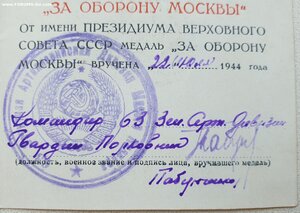 „ЗА ОБОРОНУ МОСКВЫ"
ОТ ИМЕНИ ПРЕЗИДИУМА ВЕРХОВНОГО
СОВЕТА СССР МЕДАЛЬ „ЗА ОБОРОНУ
МОСКВЫ" ВРУЧЕНА 22 1944 года
Командир 63 Зен. Арт. Дивизии
Гвардии Полковник
(должность, воинское звание и подпись лица, вручившего медаль)